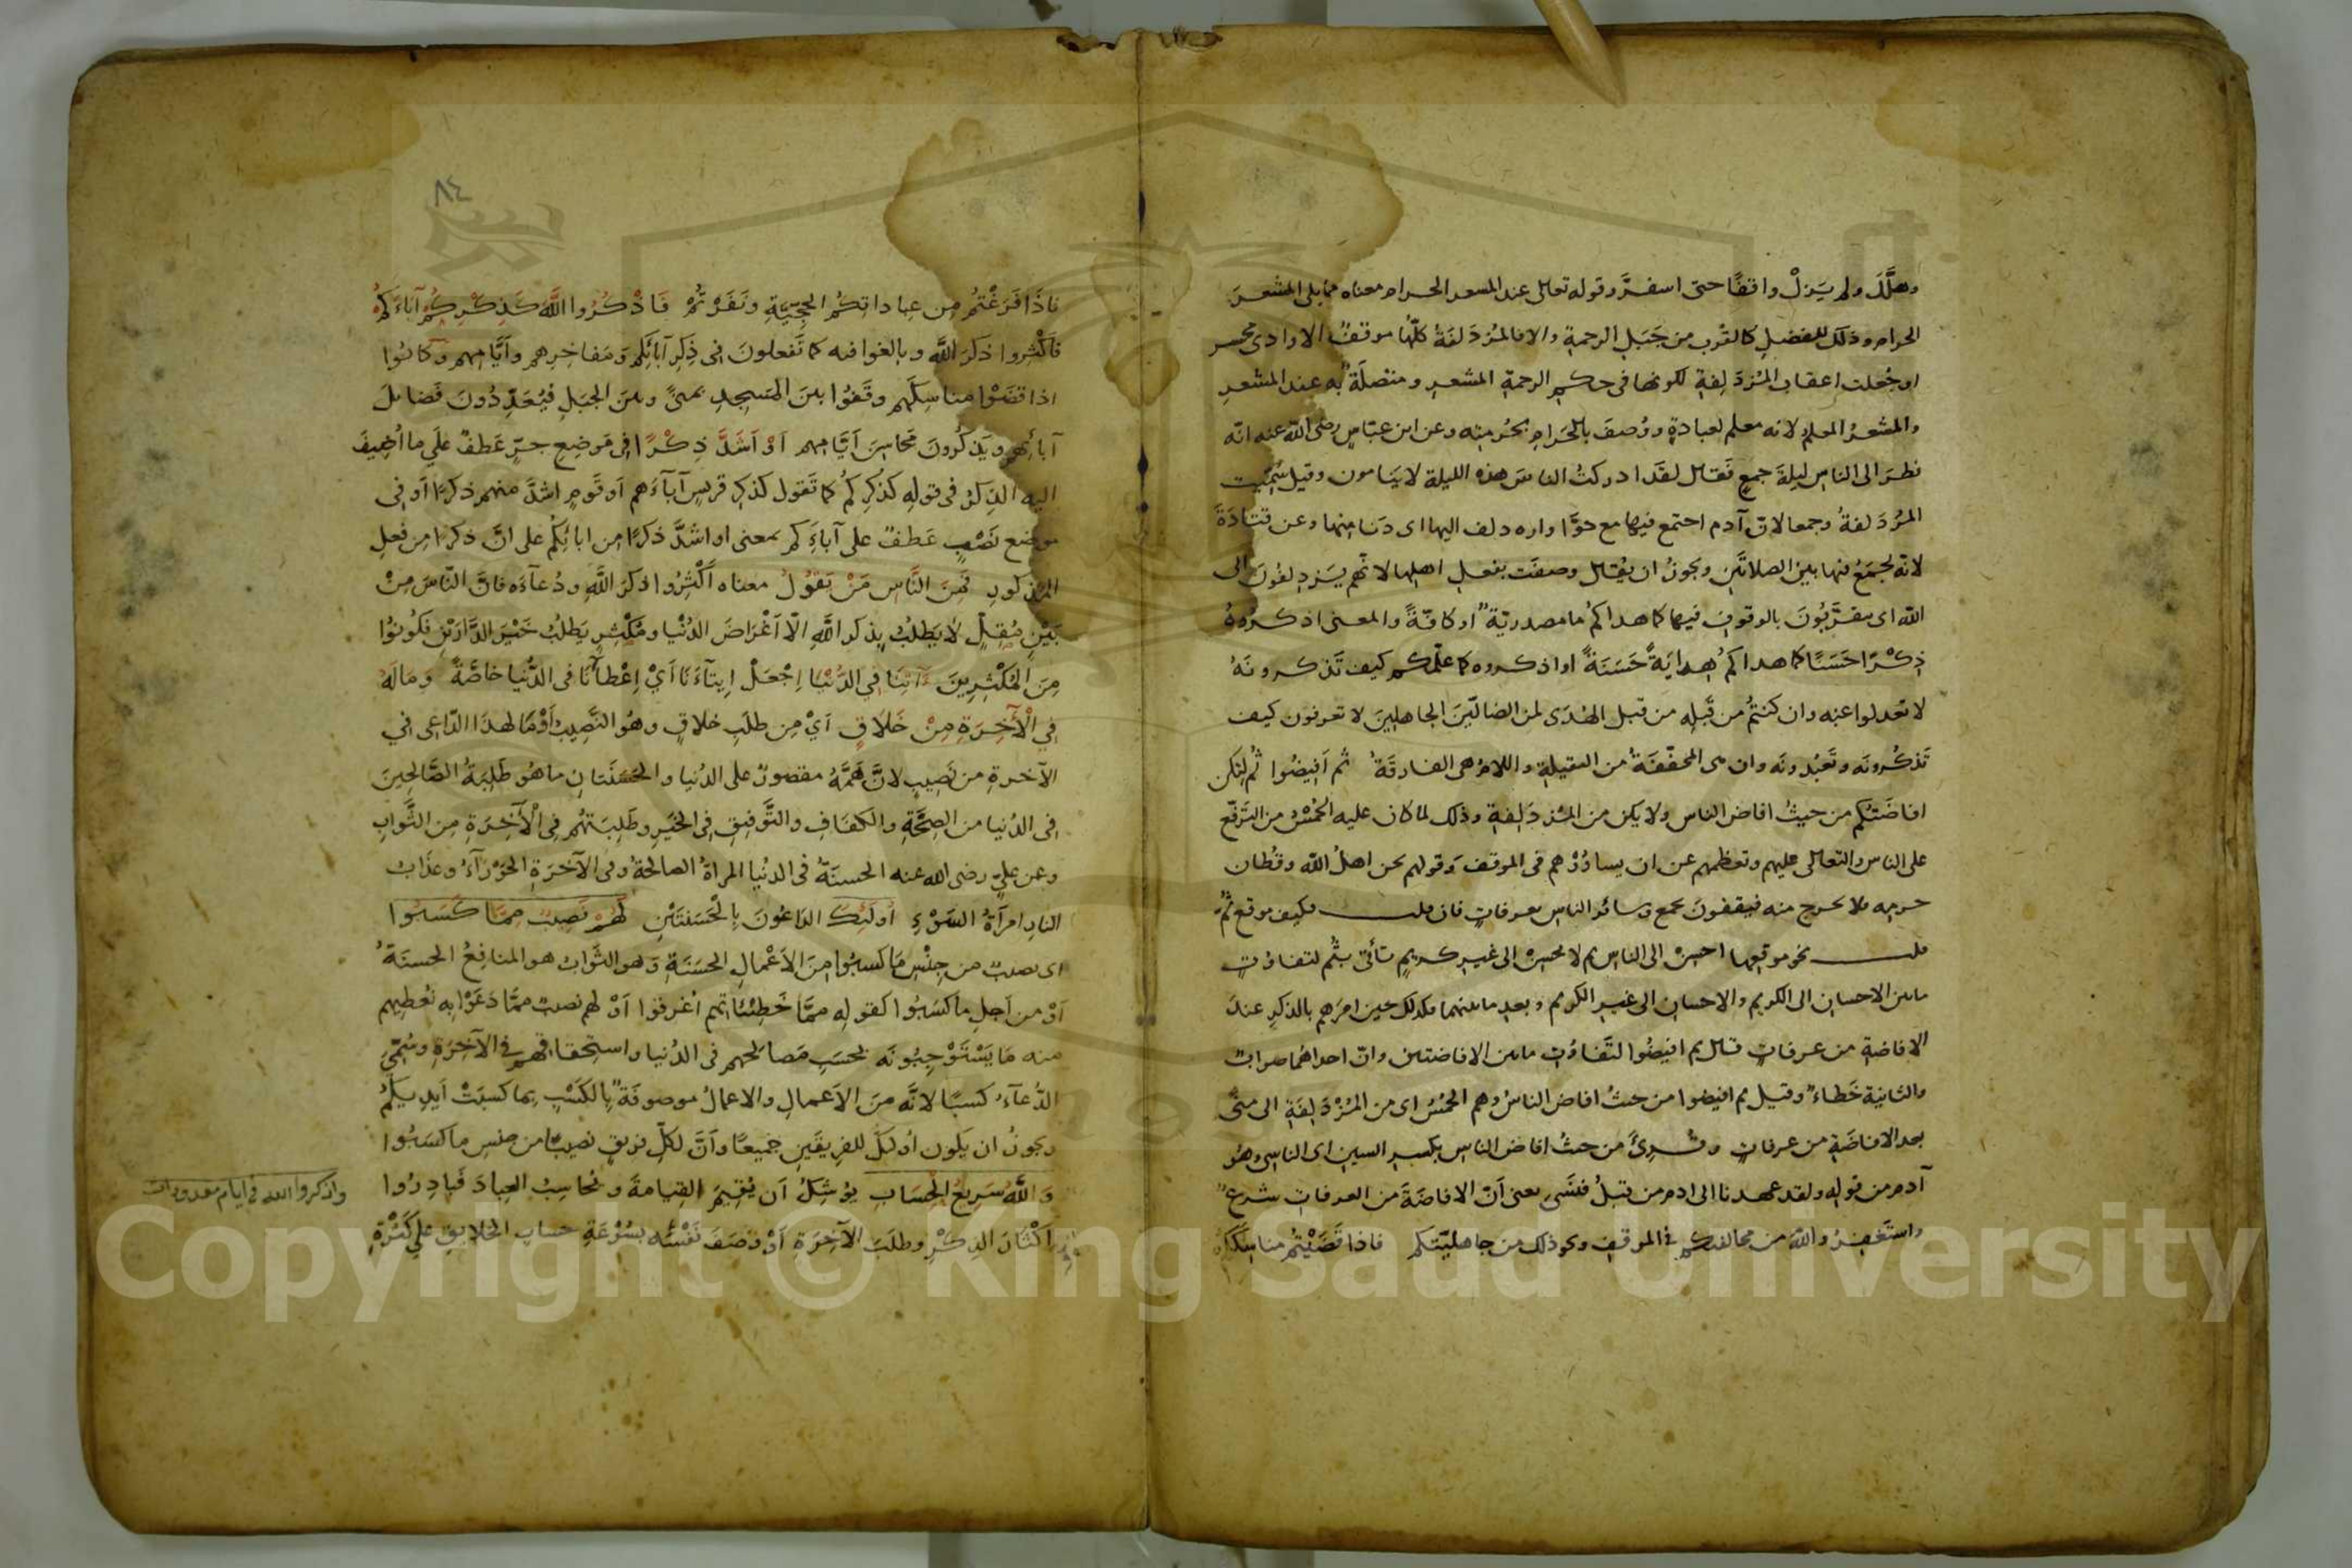 وهلَّلَ ولم يَزلْ واقفًا حتى اسفرَّ وقوله تعالى عند المسعر الحرام معناه ممايلى المشعرَ
الحرام وذلك للفضلِ كالقرب من جَبَلِ الرحمةِ والا فالمُزدَلفَةُ كلّها موقفٌ الا وادى محسر
او جُعلت اعقاب المُزدَلِفةِ لكونها فى حكم الرحمةِ المشعرِ ومتصلَةً به عند المشعرِ
والمشعرُ المعلم لانه معلم لعبادةٍ ووُصفَ بالحَرامِ لحُرمتِه وعن ابن عبّاسٍ رضى الله عنه انّه
نظرَ الى الناسِ ليلةَ جمعٍ فَقال لقَد ادركتُ الناسَ هذه الليلة لا يَنامون وقيل سُمّيت
المُزدَلفةُ وجمعا لانّ آدم اجتمع فيها مع حوّا وازدلف اليها اى دَنا منها وعن قتادَةَ
لانّه يُجمَعُ فيها بين الصلاتَين ويجوزُ ان يُقال وصفَت بفعلِ اهلِها لانّهم يَزدلفُونَ الى
الله اى يتقرَّبُونَ بالوقوفِ فيها كما هداكمُ ما مصدريّةٌ او كافّةٌ والمعنى اذكرُوهُ
ذِكْرًا حَسَنًا كما هداكمُ هِدايَةً حَسَنَةً او اذكروه كما علّمكم كيف تَذكرونَهُ
لا تعدلوا عنه وان كنتمُ من قَبلِه من قبل الهُدَى لمن الضالّينَ الجاهلِينَ لا تعرفون كيف
تَذكُرونَه وتَعبُدونَه وان هى المخفّفَةُ من الثقيلةِ واللامُ هى الفارقَةُ ثم اَفِيضُوا ثُم لِتَكن
افاضَتُكم من حيثُ افاضَ الناس ولا يكن من المُزدَلِفةِ وذلك لما كان عليه الحُمْسُ من الترفّع
على الناس والتعالى عليهم وتعظمهم عن ان يساوُوْهم فى الموقف وقولهم نحن اهلُ الله وقُطان
حرمه فلا نخرج منه فيقفونَ بجمع وسائر الناس بعرفاتٍ فان قلت فكيف موقع ثُمَّ
قلت نحو موقعها احسِنْ الى الناس ثم لا تحسِنْ الى غيرِ كريمٍ تأتى بثُم لتفاوُتِ
مابين الاحسان الى الكريم والاحسان الى غير الكريم وبعدِ مابينهما فكذلك حين امرَهم بالذكرِ عندَ
الافاضةِ من عرفاتٍ قال ثم افيضُوا لتَفاوُتِ مابين الافاضتين وانّ احداهُما صوابٌ
والثانية خَطاءٌ وقيل ثم افيضوا من حيثُ افاضَ الناسُ وهم الحُمْسُ اى من المُزْدَلِفَةِ الى منًى
بعد الافاضَةِ من عرفاتٍ وقُرِئَ من حيثُ افاض الناسِ بكسرِ السين اى الناسى وهُو
آدم من قوله ولقد عهدنا الى ادم من قبلُ فنَسىَ يعنى اَنّ الافاضَةَ من العرفات شرعٌ
واستَغفِرُوا الله من مخالفتكم فى الموقفِ ونحو ذلك من جاهليّتكم فاذا قَضَيْتُم مناسِكَكُم
٨٤
فاذَا فَرَغْتُم مِن عِباداتِكُم الحجِّيَّةِ ونَفَرْتُمْ فَاذْكُرُوا اللَّهَ كَذِكْرِكُمْ آبَاءَكُمْ
فَاَكْثِرُوا ذكرَ اللَّهِ وبالغوا فيه كما تَفعلونَ فى ذِكِر آبائِكُم ومَفاخِرِهم واَيَّامِهم وَكانُوا
اذا قضَوْا مناسِكَهم وقَفُوا بينَ المَسجِدِ بمنًى وبينَ الجبَلِ فيُعَدِّدُونَ فَضائلَ
آبائهم ويَذكُرونَ مَحاسِنَ اَيَّامِهم اَوْ اَشَدَّ ذِكْرًا فى مَوضعِ جرٍّ عَطفٌ عَلى ما اُضِيفَ
اليه الذِكرُ فى قولِه كذِكرِكُم كما تَقول كذكرِ قريشٍ آباءَهم اَو قَومٍ اشدَّ منهم ذكرًا اَو فى
موضع نَصْبٍ عَطفٌ على آباءَكم بمعنى او اشدَّ ذكرًا من ابائِكُم على انّ ذكرًا من فعلِ
المذكورِ فَمِنَ النَّاسِ مَنْ يَقُولُ معناه اَكْثِرُوا ذكرَ اللَّهِ ودُعآءَه فانَّ النّاسَ مِنْ
بَيْنِ مُقِلٍّ لا يَطلُبُ بِذكرِ اللَّهِ الّا اَغْرَاضَ الدُنْيا ومُكْثِرٍ يَطلبُ خَيْرَ الدَّارَيْنِ فكُونُوا
مِنَ المُكْثِرِينَ آتِنَا فِي الدُنْيَا اِجْعَلْ اِيتآءَنَا اَيْ اِعْطآءَنَا فى الدُّنيا خاصَّةً وَمَا لَهُ
فِي الْآخِرَةِ مِنْ خَلَاقٍ اَيْ مِن طلَبِ خلاقٍ وهُو النَّصِيبُ اَوْ مَا لهذَا الدّاعِى فِي
الآخرةِ من نَصِيبٍ لانَّ هَمَّهُ مقصورٌ على الدُنيا والحَسَنَتانِ ما هُو طَلِبَةُ الصَّالِحِينَ
فى الدُنيا من الصِحَّةِ والكفَافِ والتَّوفيقِ فِى الخَيرِ وطَلِبَتهُم فِى الْآخِرَةِ مِن الثَّوابِ
وعن علىٍّ رضى الله عنه الحسنَةُ فى الدنُيا المراةُ الصالحةُ وفى الآخرَةِ الحَوْرَآءُ وعذَابُ
النار امراَةُ السَوْءِ اُولَئِكَ الداعُونَ بِالْحَسَنَتَيْنِ لَهُمْ نَصِيبٌ مِمَّا كَسَبُوا
اى نصيبٌ من جِنْسِ مَا كسبُوا مِنَ الاَعْمالِ الحسَنَةِ وَهو الثَّوابُ هو المنافِعُ الحسنَةُ
اَوْ من اَجلِ ما كسَبُوا كقولِه ممّا خَطِيْئاتِهم اُغرقوا اَوْ لهم نصيبٌ ممَّا دَعَوْا به نُعطِيهم
منه مَا يَسْتَوْجِبُونَه بحسَبِ مَصالحهم فى الدُنيا واستِحقاقِهم فى الآخِرَةِ وسُمِّىَ
الدُّعآءُ كسبًا لانَّه مِنَ الاَعمالِ والاعمالُ موصوفَةٌ بِالكَسْبِ بِما كسَبَتْ اَيدِيكُمْ
ويجوزُ ان يكون اُولئكَ للفرِيقَينِ جميعًا واَنَّ لكلِّ فريقٍ نصيبًا من جنسِ ما كسَبُوا
وَاللَّهُ سَرِيعُ الْحِسَابِ يُوشِكُ اَن يُقِيمَ القِيامةَ ويُحاسِبُ العِبادَ فَبادِرُوا
اِكْثارَ الذِكْرِ وطلَبَ الآخِرَةِ اَوْ وَصَفَ نَفْسَه بسُرْعَةِ حساب الخلايقِ على كَثْرَةِ
واذكروا الله فى ايام معدودات
Copyright © King Saud University